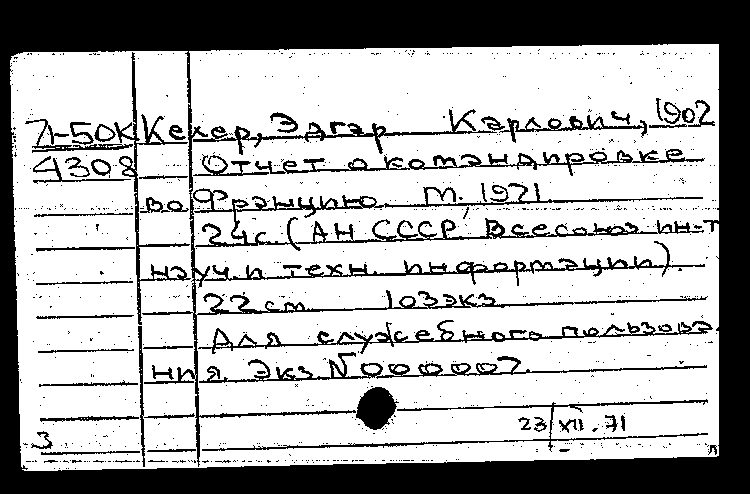 71-50К Кехер, Эдгар Карлович, 1902
4308 Отчет о командировке
во Францию. М., 1971.
24с. (АН СССР. Всесоюз ин-т
науч и техн. информации).
22 см 103экз
Для служебного пользова-
ния. Экз №000007.
23/XII.71
3